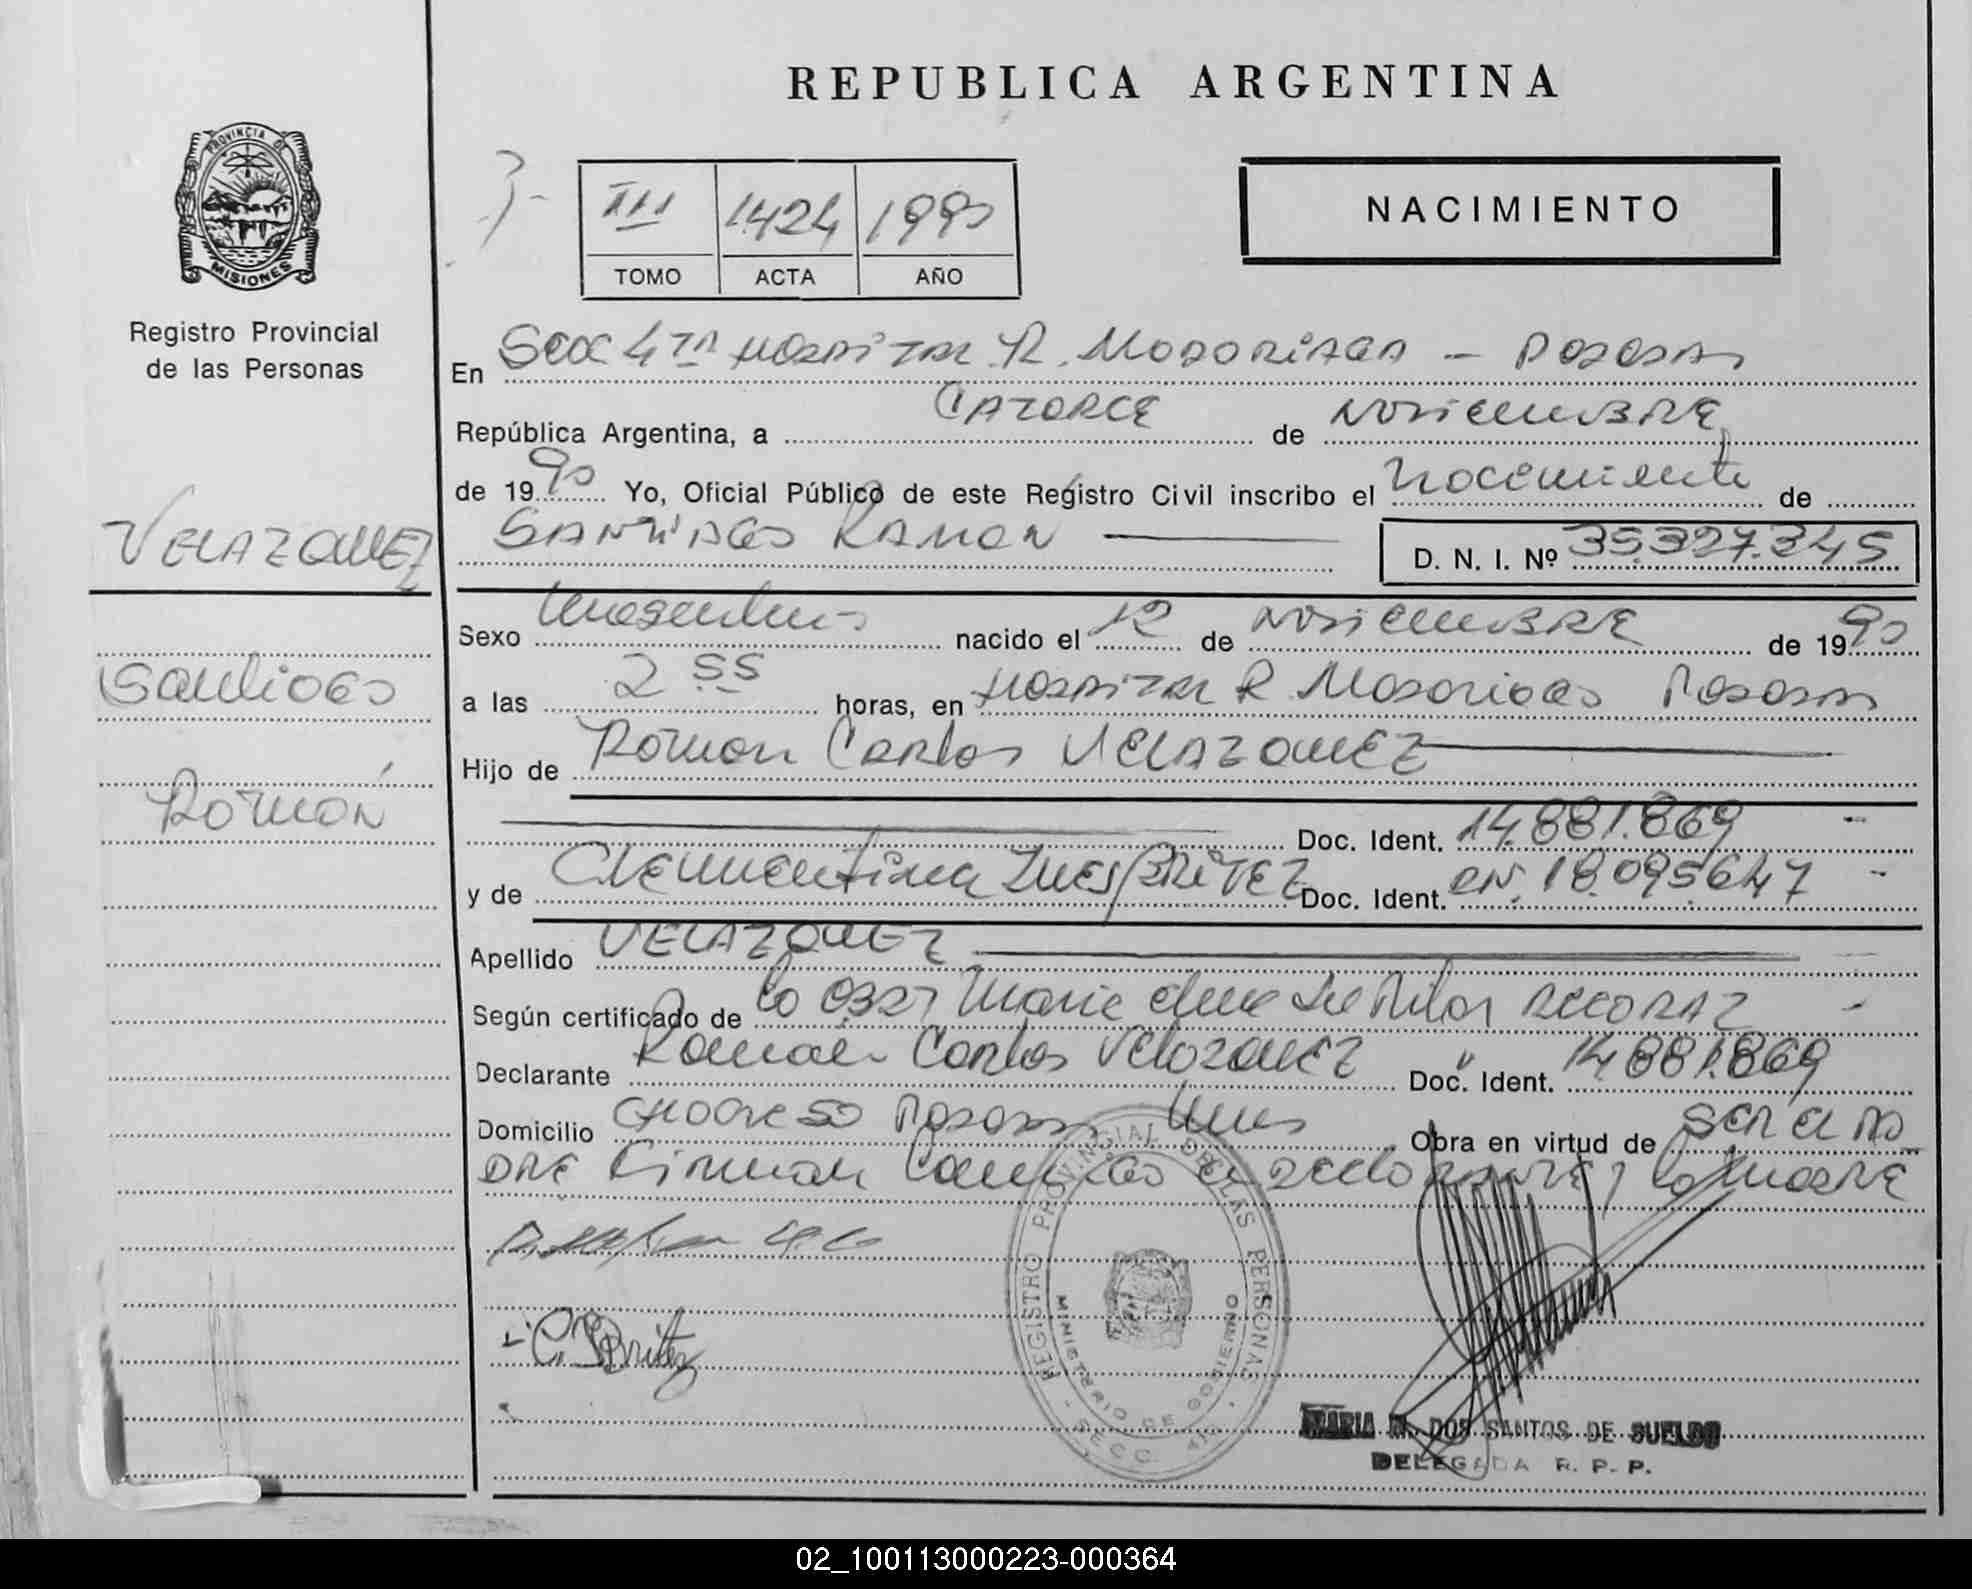 REPUBLICA ARGENTINA
PROVINCIA DE
MISIONES
Registro Provincial
de las Personas
III 1424 1990
TOMO ACTA AÑO
NACIMIENTO
En Secc 4ta Hospital R. Madariaga - Posadas
República Argentina, a CATORCE de NOVIEMBRE
de 1990 Yo, Oficial Público de este Registro Civil inscribo el Nacimiento de
SANTIAGO RAMON D. N. I. Nº 35.327.345
VELAZQUEZ
Santiago
Ramón
Sexo Masculino nacido el 12 de NOVIEMBRE de 1990
a las 2 55 horas, en Hospital R. Madariaga Posadas
Hijo de Ramon Carlos VELAZQUEZ
Doc. Ident. 14.881.869
y de Clementina Ines BRITEZ Doc. Ident. 18.095647
Apellido VELAZQUEZ
Según certificado de la Obst Maria del Pilar
Declarante Ramon Carlos VelazquEZ Doc. Ident. 14.881.869
Domicilio Posadas Obra en virtud de ser el pa
dre Firman conmigo el declarante y la madre
C. Britez
REGISTRO PROVINCIAL DE LAS PERSONAS
MINISTERIO DE GOBIERNO
SECC. 4ta
MARIA M. DOS SANTOS DE SUELDO
DELEGADA R. P. P.
02_100113000223-000364